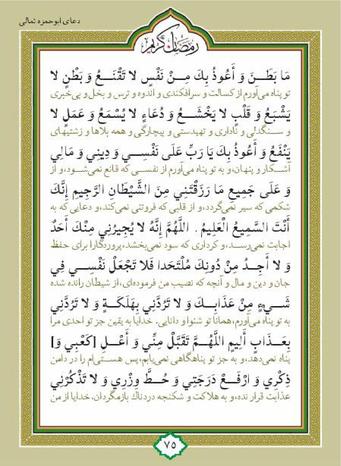 دعای ابوحمزه ثمالی
رمضان کریم
مَا بَطَنَ وَ أَعُوذُ بِكَ مِنْ نَفْسٍ لَا تَقْنَعُ وَ بَطْنٍ لَا
تو پناه می‌آورم از کسالت و سرافکندگی و اندوه و ترس و بخل و بی‌خبری
يَشْبَعُ وَ قَلْبٍ لَا يَخْشَعُ وَ دُعَاءٍ لَا يُسْمَعُ وَ عَمَلٍ لَا
و سنگدلی و ناداری و تهیدستی و بیچارگی و همه بلاها و زشتیهای
يَنْفَعُ وَ أَعُوذُ بِكَ يَا رَبِّ عَلَى نَفْسِي وَ دِينِي وَ مَالِي
آشکار و پنهان، و به تو پناه می‌آورم از نفسی که قانع نمی‌شود، و از
وَ عَلَى جَمِيعِ مَا رَزَقْتَنِي مِنَ الشَّيْطَانِ الرَّجِيمِ إِنَّكَ
شکمی که سیر نمی‌گردد، و از قلبی که فروتنی نمی‌کند، و دعایی که به
أَنْتَ السَّمِيعُ الْعَلِيمُ . اللَّهُمَّ إِنَّهُ لَا يُجِيرُنِي مِنْكَ أَحَدٌ
اجابت نمی‌رسد، و کرداری که سود نمی‌بخشد، پروردگارا برای حفظ
وَ لَا أَجِدُ مِنْ دُونِكَ مُلْتَحَدا فَلَا تَجْعَلْ نَفْسِي فِي
جان و دین و مال و آنچه که نصیب من فرموده‌ای، از شیطان رانده شده
شَيْءٍ مِنْ عَذَابِكَ وَ لَا تَرُدَّنِي بِهَلَكَةٍ وَ لَا تَرُدَّنِي
به تو پناه می‌آورم، همانا تو شنوا و دانایی. خدایا به یقین جز تو احدی مرا
بِعَذَابٍ أَلِيمٍ اللَّهُمَّ تَقَبَّلْ مِنِّي وَ أَعْلِ [كَعْبِي وَ]
پناه نمی‌دهد، و به جز تو پناهگاهی نمی‌یابم، پس هستی‌ام را در دامن
ذِكْرِي وَ ارْفَعْ دَرَجَتِي وَ حُطَّ وِزْرِي وَ لَا تَذْكُرْنِي
عذابت قرار نده، و به هلاکت و شکنجه دردناک بازمگردان. خدایا از من
۷۵